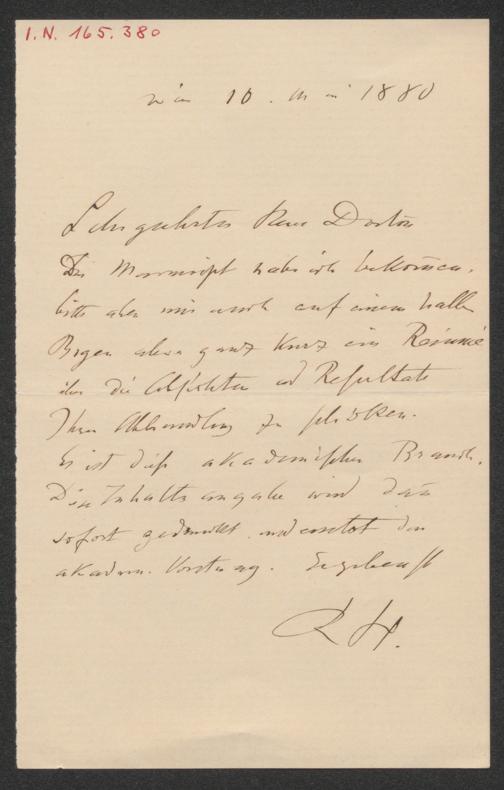 I.N. 165.380
Wien 10. Mai 1880
Sehr geehrter Herr Doctor
Das Manuscript habe ich bekom̅en.
bitte aber mir noch auf einem halben
Bogen aber ganz kurz ein Reśumé
über die Absichten und Resultate
Ihrer Abhandlung zu schicken.
Es ist dieß akademischer Brauch.
Die Inhaltsangabe wird dan̅
sofort gedruckt und ersetzt den
akadem. Vortrag. Ergebenst
RH.